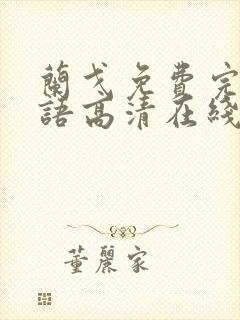 蘭戈免費完
語高清在綫
董麗家